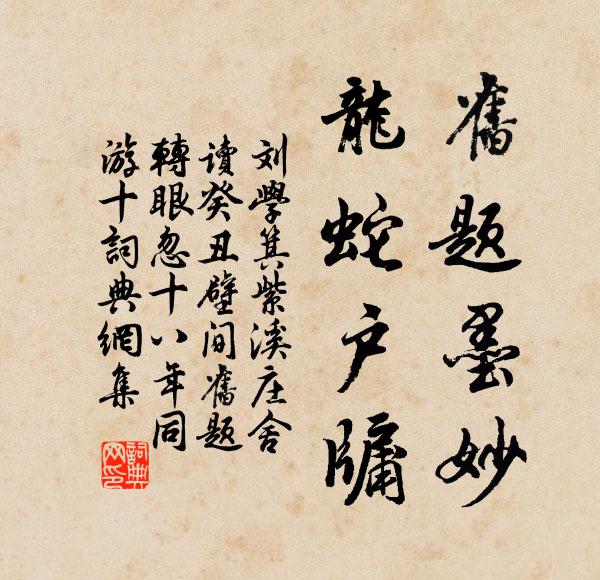 舊题墨妙
龍蛇户牖
刘學箕紫溪庄舍
讀癸丑壁间舊题
轉眼忽十八年同
游十詞典網集
詞典網印